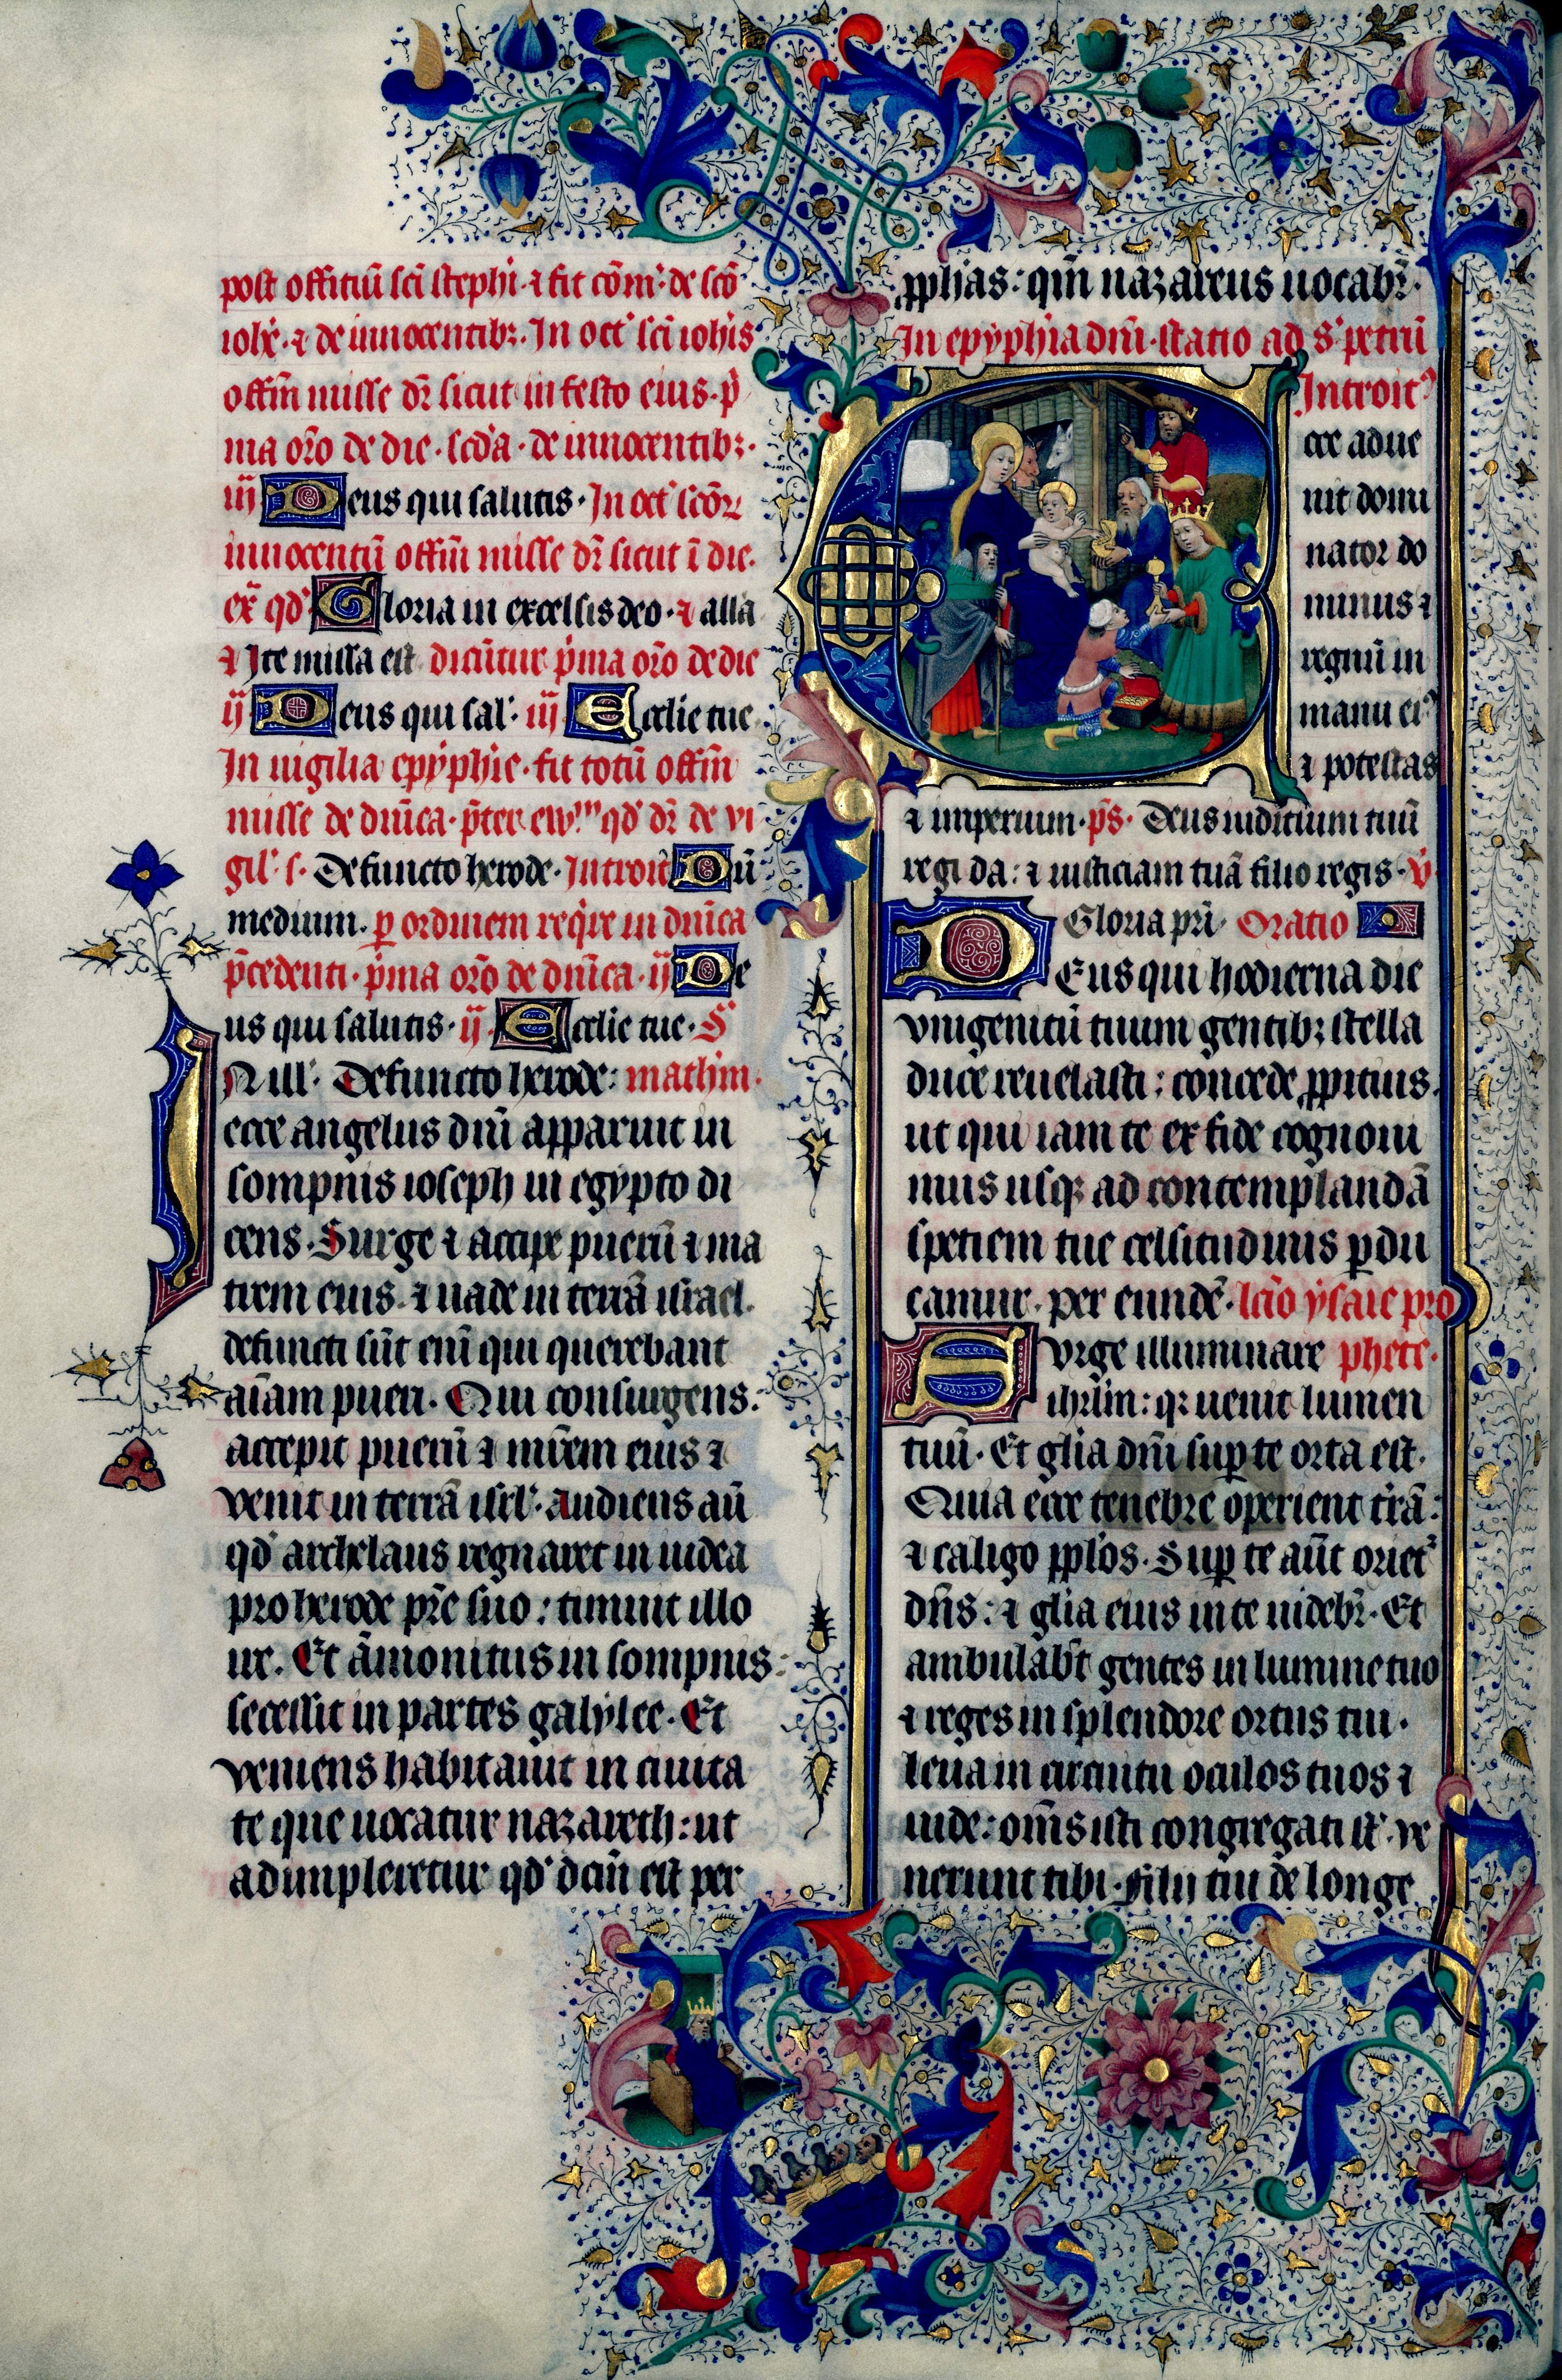 post offitiũ sci̅ stephi· ⁊ fit cõm̃· de sc̃o
ioh̃e· ⁊ de innocentibꝫ. In oct̃ sci̅ ioh̃is
offm̃ misse dr̃ sicut in festo eius· p̃
ma or̃o de die· scd̃a· de innocentibꝫ·
iij Deus qui salutis· In oct̃ sc̃oꝝ
innocentiũ offm̃ misse dr̃ sicut ĩ die·
ex̃ qd̃ Gloria in excelsis deo· ⁊ alla
⁊ Ite missa est dicũtur p̃ma or̃o de die
ij Deus qui sal̃· iij Ecclie tue
In uigilia epyphie· fit totũ offm̃
misse de dñica· p̃ter ew̃ᵐ qd̃ dr̃ de vi
gil̃· s· Defuncto herode· Introit̃ Dũ
medium· ꝑ ordinem reqͥre in dñica
p̃cedenti· p̃ma or̃o de dñica· ij De
us qui salutis· ij· Ecclie tue· S̃
IN ill̃· Defuncto herode: mathm̃·
ecce angelus dñi apparuit in
sompnis ioseph in egypto di
cens· Surge ⁊ accipe puerũ ⁊ ma
trem eius· ⁊ uade in terrã israel·
defuncti sũt eni̅ qui querebant
ai̅am pueri· Qui consurgens·
accepit puerũ ⁊ mr̃em eius ⁊
venit in terrã isrl̃· audiens aũ
qd̃ archelaus regnaret in iudea
pro herode pr̃e suo: timuit illo
ire· Et ãmonitus in sompnis:
secessit in partes galylee· Et
veniens habitauit in ciuita
te que uocatur nazareth: ut
adimpleretur qd̃ dc̃m̃ est per
ꝓph̃as: qm̃ nazareus uocabr̃·
In epyphia dñi· statio ad s· petrũ
Introitꝰ
Ecce adue
nit domi
nator do
minus ⁊
regnũ in
manu eiꝰ
⁊ potestas
⁊ imperium· ps̃· Deus iuditium tuũ
regi da: ⁊ iusticiam tuã filio regis· v̓
Gloria pr̃i· Oratio
DEus qui hodierna die
vnigenitũ tuum gentibꝫ stella
duce reuelasti: concede ꝓpitius·
ut qui iam te ex fide cognoui
mus usqꝫ ad contemplandã
spetiem tue celsitudinis ꝑdu
camur· per eundẽ· lcĩo ysaie pro
SVrge illuminare phete·
ihrlm̃: qꝛ uenit lumen
tuũ· Et glĩa dñi suꝑ te orta est·
Quia ecce tenebre operient tr̃ã:
⁊ caligo ppl̃os· Suꝑ te aũt orietᷣ
dñs: ⁊ glĩa eius in te uidebr̃· Et
ambulabt̃ gentes in lumine tuo
⁊ reges in splendore ortus tui·
leua in circuitu oculos tuos ⁊
uide: om̃s isti congregati st̃· ve
nerunt tibi· filii tui de longe